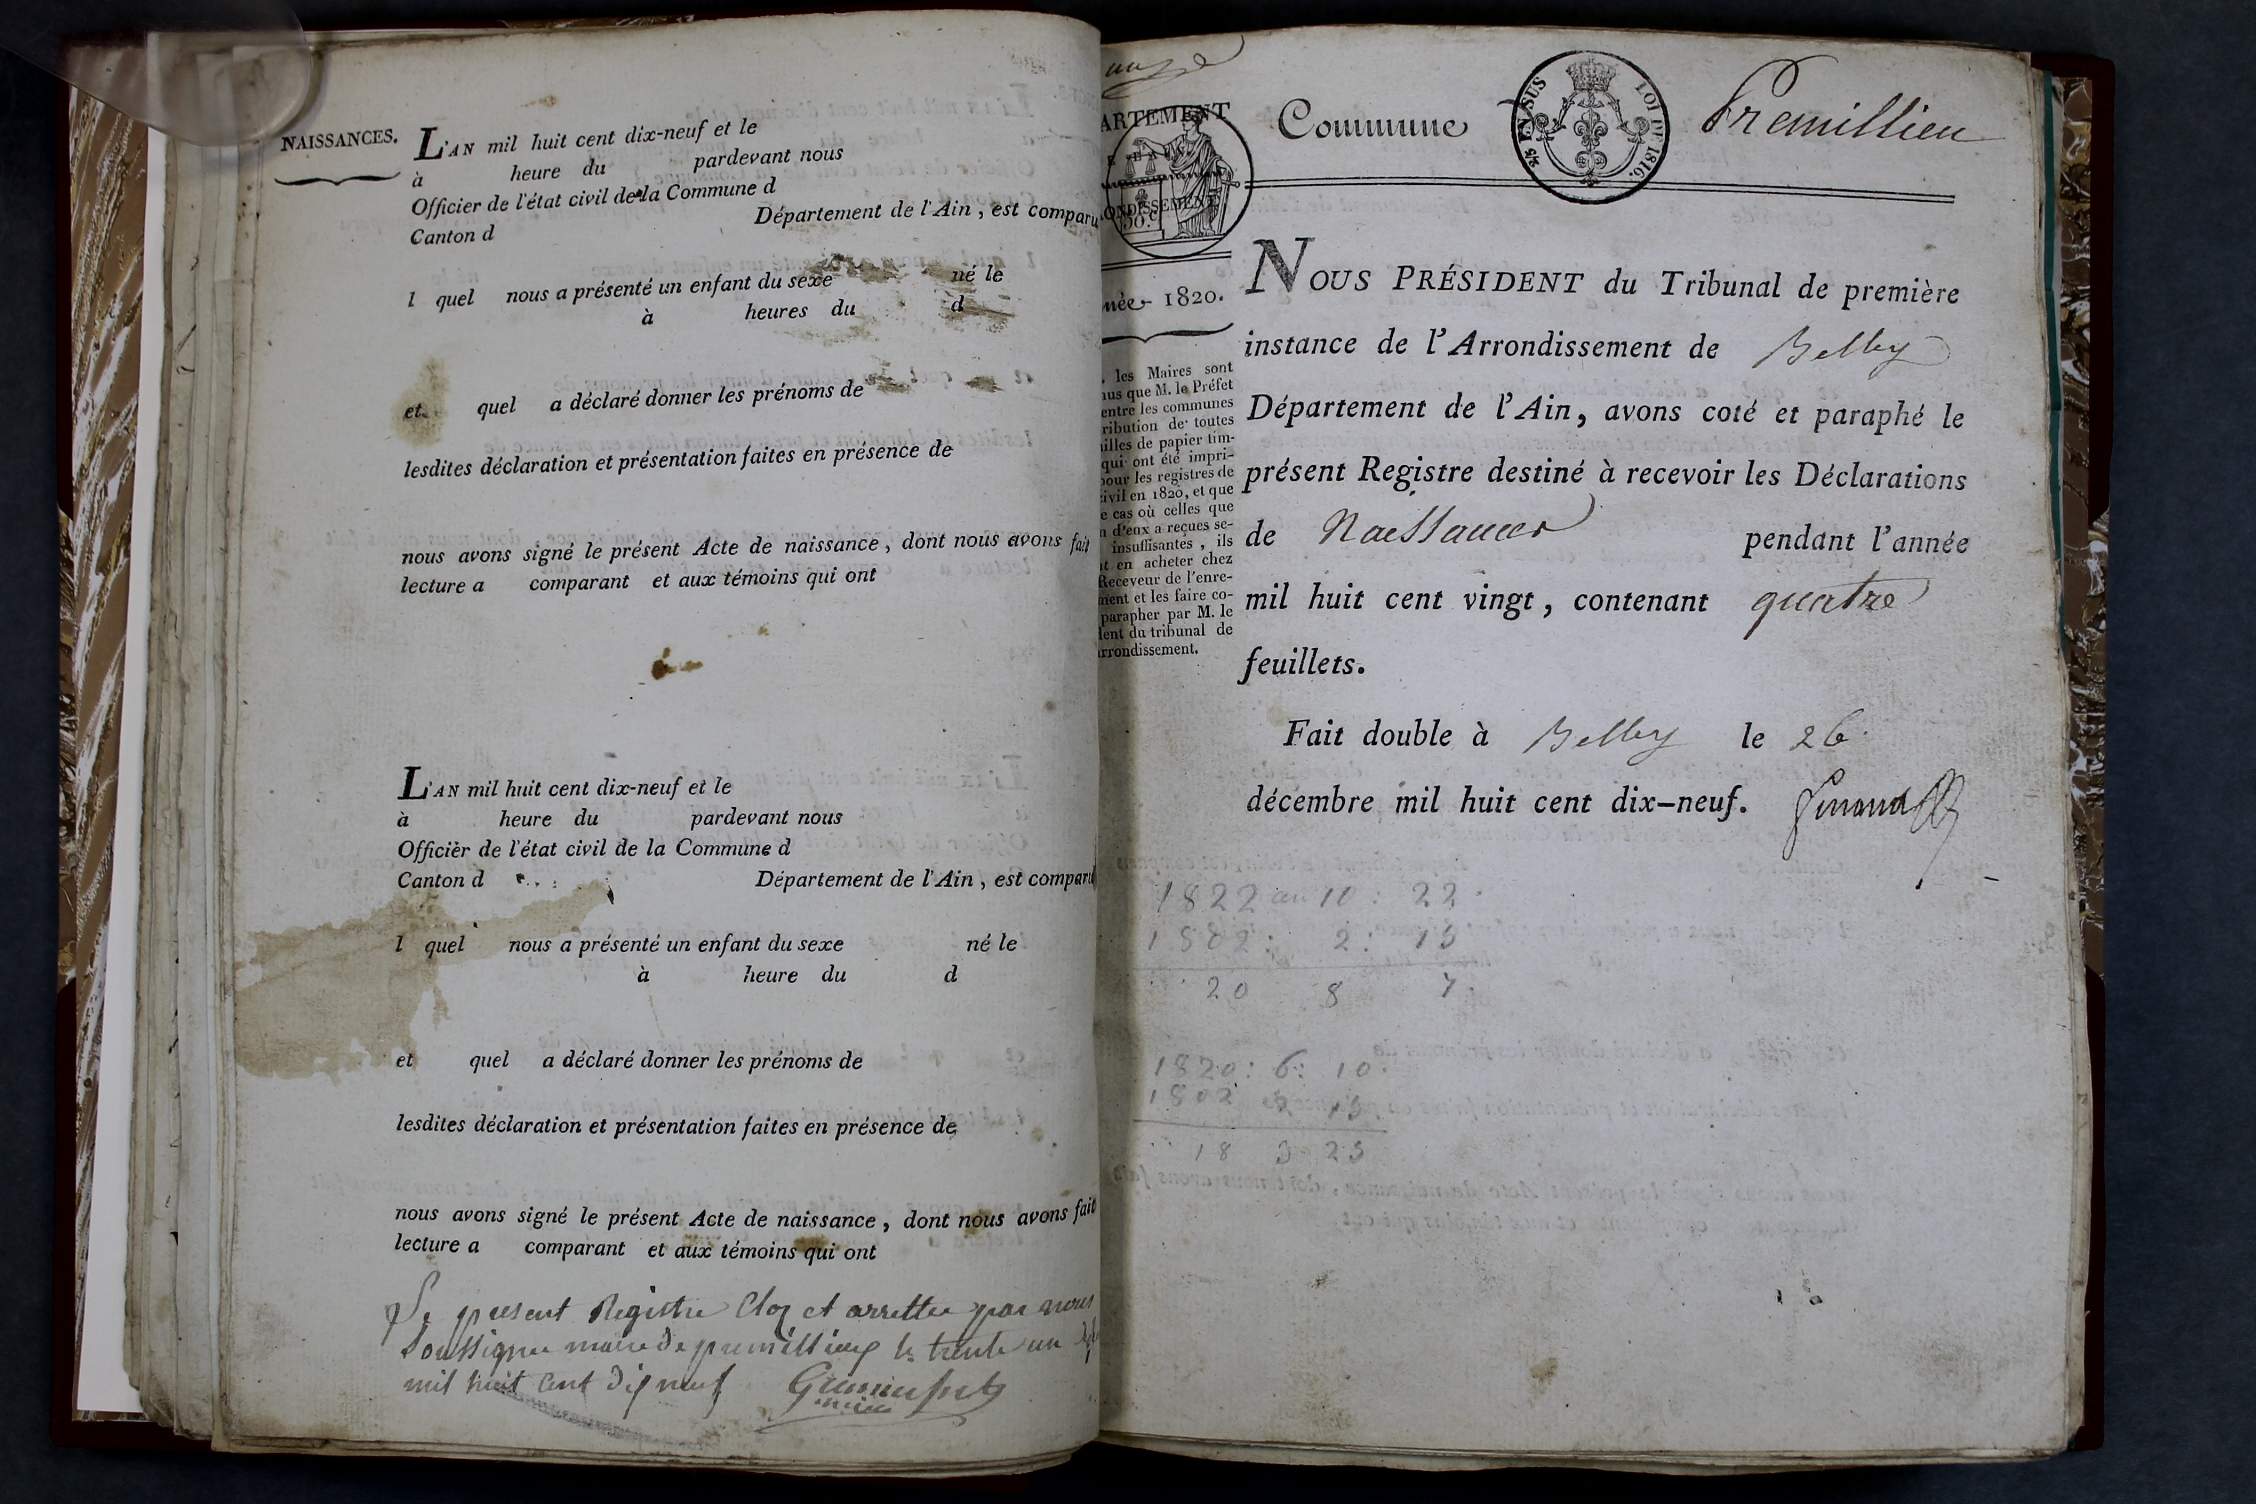 NAISSANCES.
L'AN mil huit cent dix-neuf et le
à heure du pardevant nous
Officier de l'état civil de la Commune d
Canton d Département de l'Ain, est comparu
l quel nous a présenté un enfant du sexe né le
à heures du d
et quel a déclaré donner les prénoms de
lesdites déclaration et présentation faites en présence de
nous avons signé le présent Acte de naissance, dont nous avons fait
lecture a comparant et aux témoins qui ont
L'AN mil huit cent dix-neuf et le
à heure du pardevant nous
Officier de l'état civil de la Commune d
Canton d Département de l'Ain, est comparu
l quel nous a présenté un enfant du sexe né le
à heure du d
et quel a déclaré donner les prénoms de
lesdites déclaration et présentation faites en présence de
nous avons signé le présent Acte de naissance, dont nous avons fait
lecture a comparant et aux témoins qui ont
Le present Registre Cloz et arretté par nous
Soussigné maire de premillieu le trente un
mil huit Cent dix neuf
maire
ARTEMENT
Commune
2/5 EN SUS
LOI DE 1816.
Premillieu
ONDISSEMENT
50.c
née 1820.
les Maires sont
us que M. le Préfet
entre les communes
ribution de toutes
illes de papier tim-
qui ont été impri-
our les registres de
ivil en 1820, et que
e cas où celles que
n d'eux a reçues se-
insuffisantes, ils
t en acheter chez
Receveur de l'enre-
ment et les faire co-
parapher par M. le
dent du tribunal de
rrondissement.
NOUS PRÉSIDENT du Tribunal de première
instance de l'Arrondissement de Belley
Département de l'Ain, avons coté et paraphé le
présent Registre destiné à recevoir les Déclarations
de Naissances pendant l'année
mil huit cent vingt, contenant quatre
feuillets.
Fait double à Belley le 26
décembre mil huit cent dix-neuf.
1822 an 10 : 22
1802 : 2 : 15
20 8 7
1820 : 6 : 10
1802 2 15
18 3 25